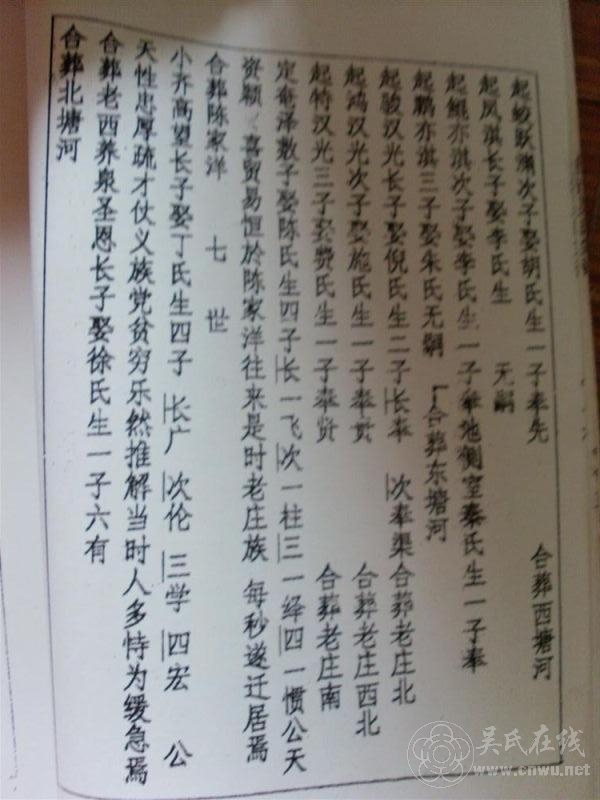 起蛟跃渊次子娶胡氏生一子奉先 合葬西塘河
起凤淇长子娶李氏生 无嗣
起鲲亦淇次子娶李氏生一子奉地侧室秦氏生一子奉
起鹏亦淇三子娶朱氏无嗣 合葬东塘河
起骏汉光长子娶倪氏生二子长奉 次奉渠合葬老庄北
起鸿汉光次子娶施氏生一子奉贯 合葬老庄西北
起特汉光三子娶费氏生一子奉贤 合葬老庄南
定奄泽敷子娶陈氏生四子长一飞次一柱三一绎四一惯公天
资颖 喜贸易恒於陈家洋往来是时老庄族 每秒遂迁居焉
合葬陈家洋 七世
小齐高望长子娶丁氏生四子 长广 次伦 三学 四宏 公
天性忠厚疏才仗义族党贫穷乐然推解当时人多恃为缓急焉
合葬老西养泉圣恩长子娶徐氏生一子六有
合葬北塘河
吴氏在线
www.cnwu.net